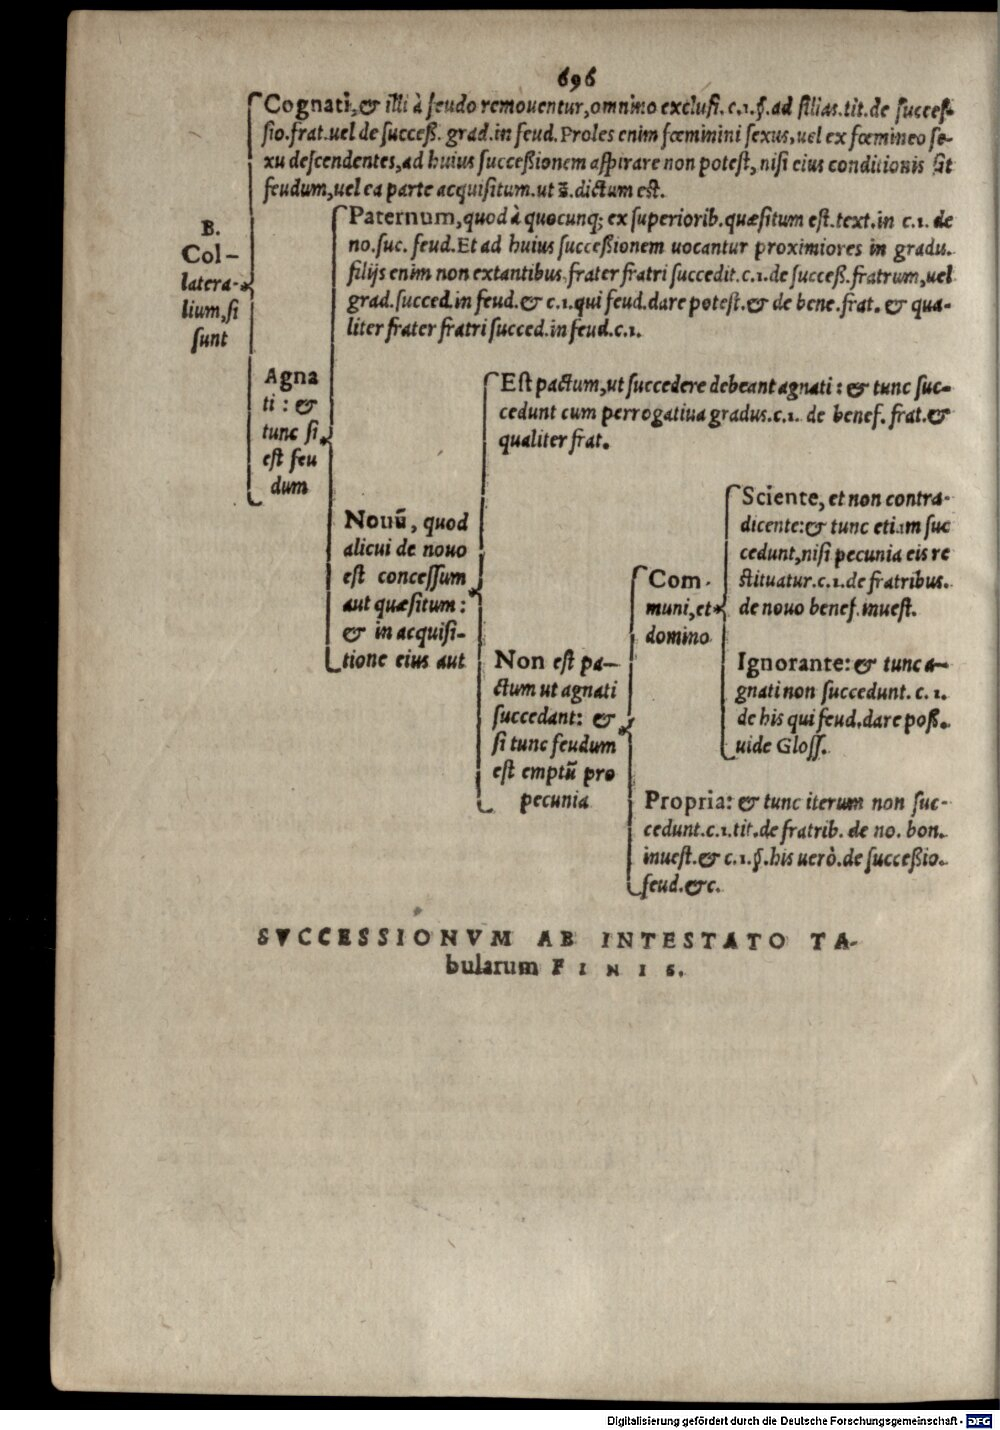 696
Cognati, & illi à feudo remouentur, omnino exclusi. c. 1. §. ad filias. tit. de succes-
sio. frat. uel de success. grad. in feud. Proles enim fœminini sexus, uel ex fœmineo se-
xu descendentes, ad huius successionem aspirare non potest, nisi eius conditionis sit
feudum, uel ea parte acquisitum. ut s̄. dictum est.
B.
Col-
latera-
lium, si
sunt
Paternum, quod à quocunq; ex superiorib. quæsitum est. text. in c. 1. de
no. suc. feud. Et ad huius successionem uocantur proximiores in gradu.
filijs enim non extantibus, frater fratri succedit. c. 1. de success. fratrum, uel
grad. succed. in feud. & c. 1. qui feud. dare potest. & de bene. frat. & qua-
liter frater fratri succed. in feud. c. 1.
Agna
ti: &
tunc si
est feu
dum
Est pactum, ut succedere debeant agnati: & tunc suc-
cedunt cum perrogatiua gradus. c. 1. de benef. frat. &
qualiter frat.
Nouū, quod
alicui de nouo
est concessum
aut quæsitum:
& in acquisi-
tione eius aut
Sciente, et non contra-
dicente: & tunc etiam suc
cedunt, nisi pecunia eis re
stituatur. c. 1. de fratribus.
de nouo benef. inuest.
Com-
muni, et
domino
Non est pa-
ctum ut agnati
succedant: &
si tunc feudum
est emptū pro
pecunia
Ignorante: & tunc a-
gnati non succedunt. c. 1.
de his qui feud. dare poss.
uide Gloss.
Propria: & tunc iterum non suc-
cedunt. c. 1. tit. de fratrib. de no. bon.
inuest. & c. 1. §. his uerò. de successio.
feud. &c.
SVCCESSIONVM AB INTESTATO TA-
bularum FINIS.
Digitalisierung gefördert durch die Deutsche Forschungsgemeinschaft - DFG